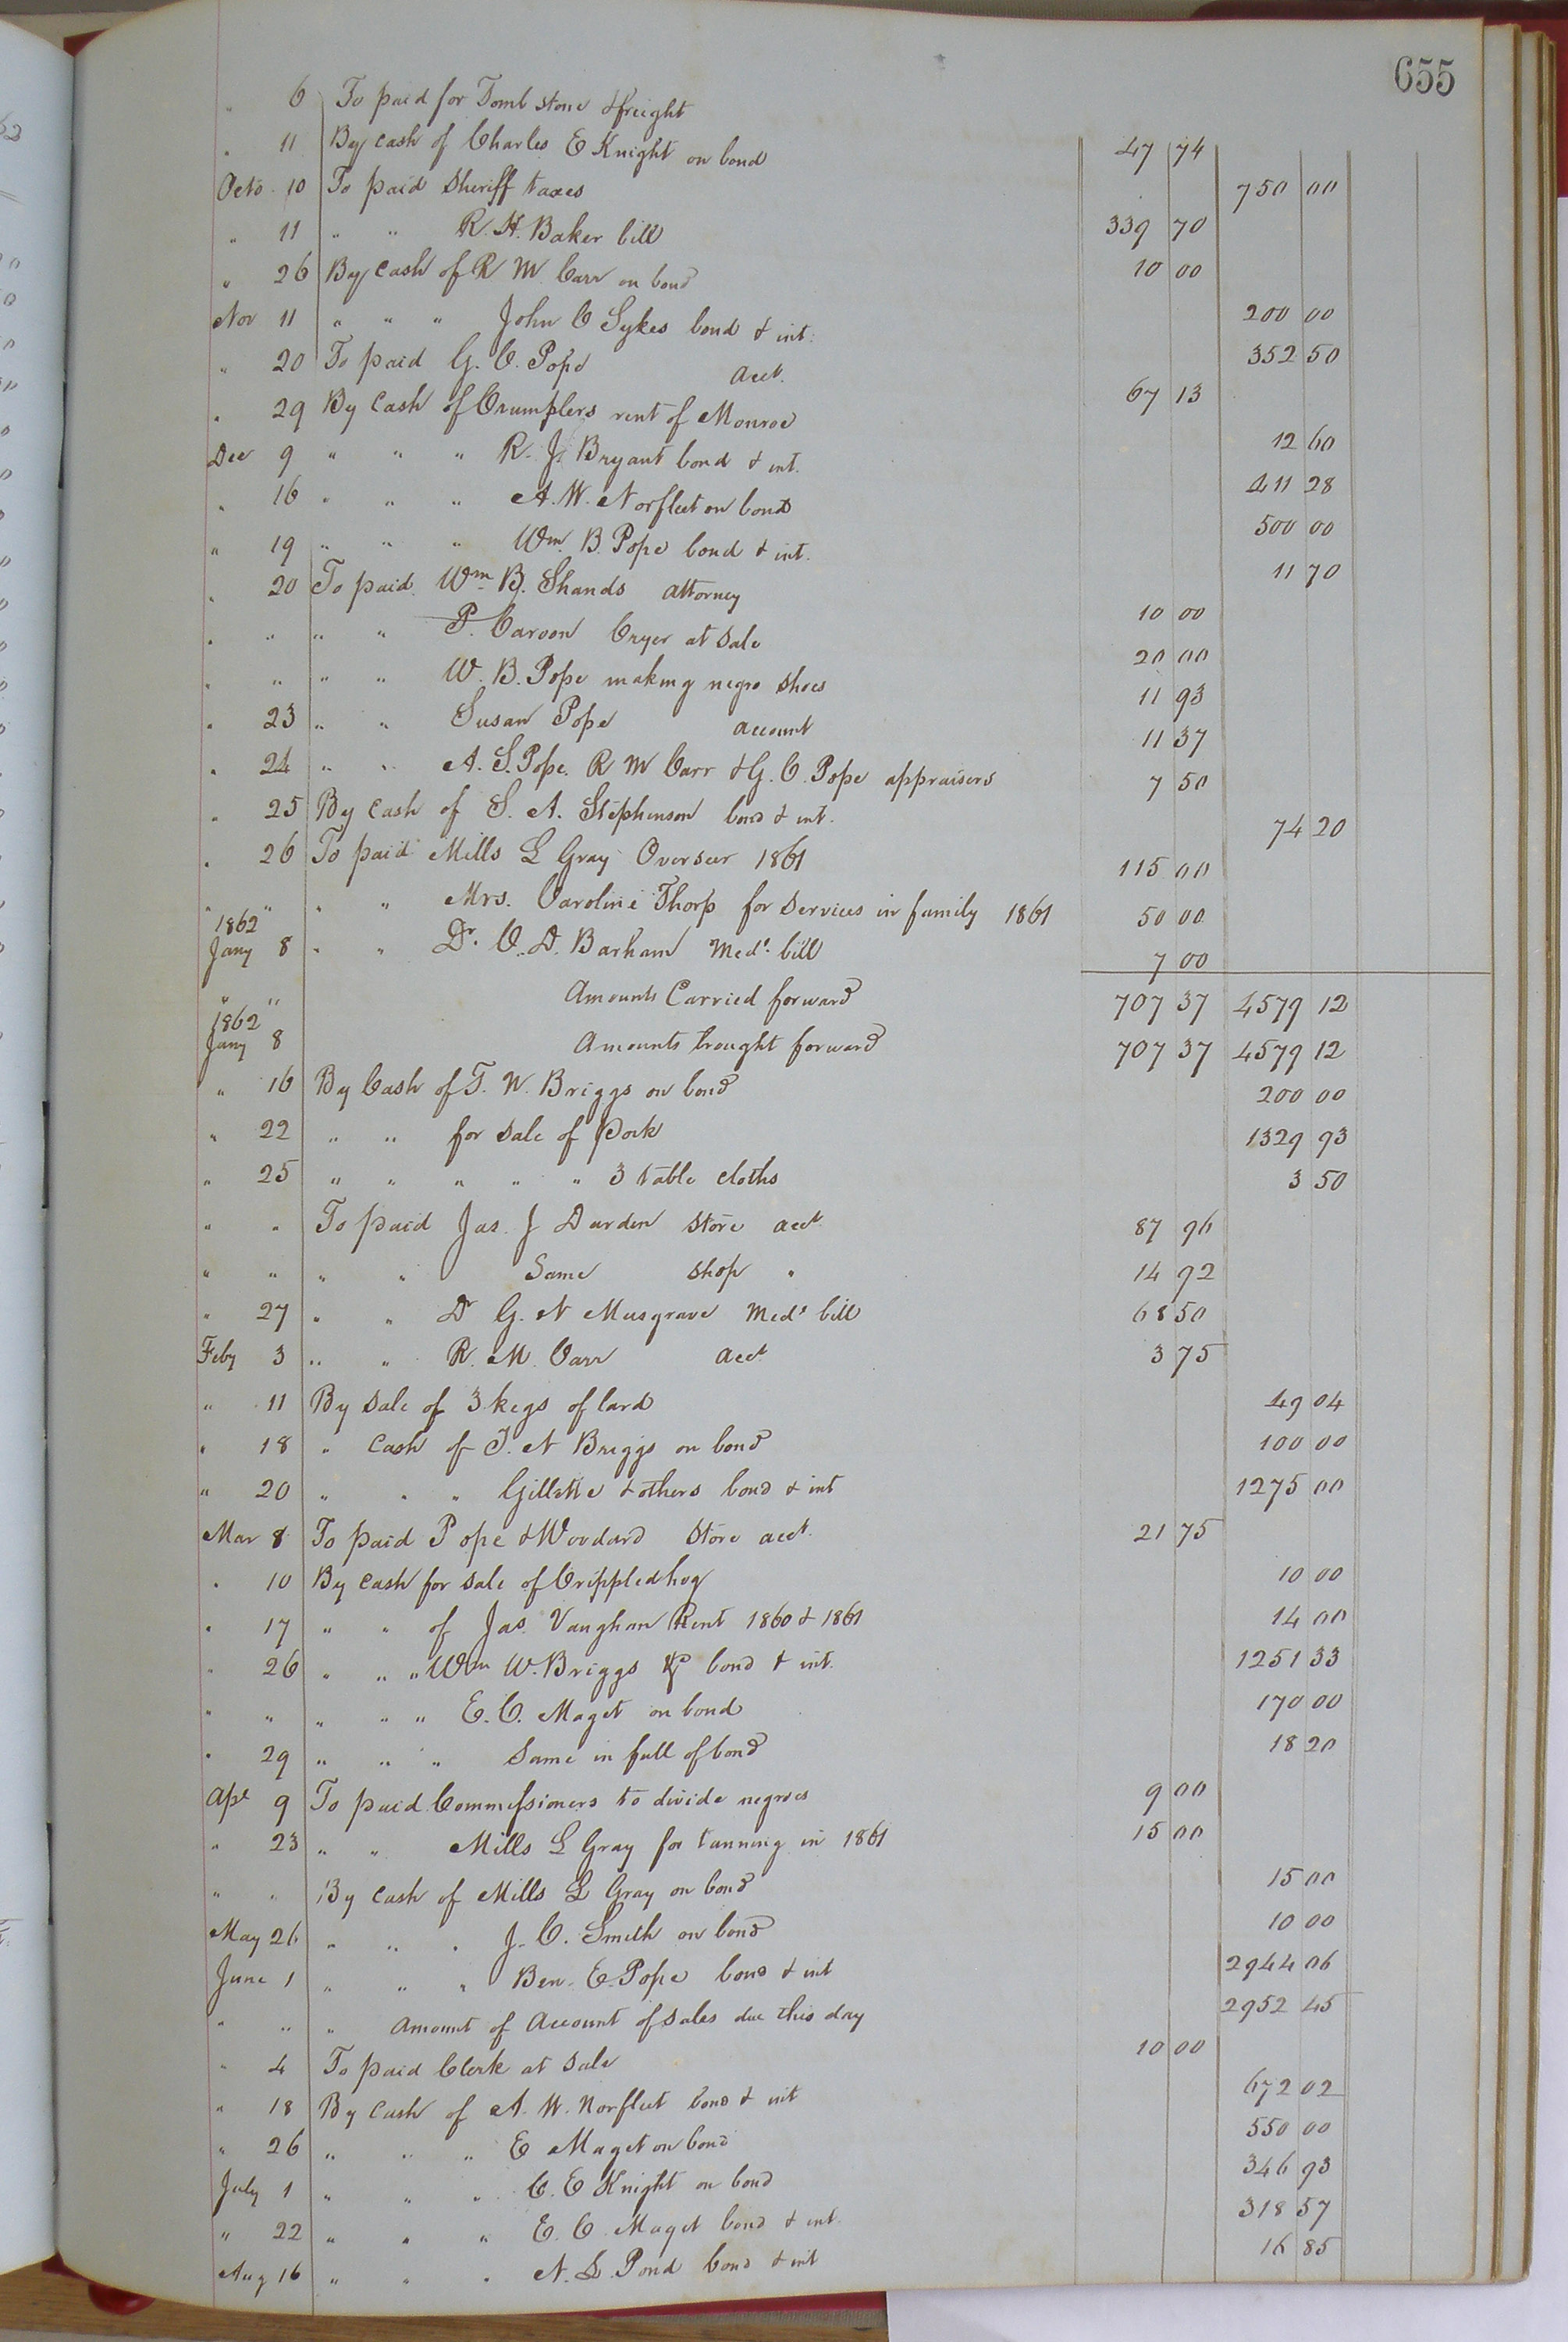 655
" 6 To paid for Tomb stone & freight 47 74
" 11 By cash of Charles E Knight on bond 750 00
Octo 10 To paid Sheriff taxes 339 70
" 11 " " R. H. Baker bill 10 00
" 26 By cash of R M Carr on bond 200 00
Nov 11 " " " John C Sykes bond & int. 352 50
" 20 To paid G. C. Pope acct. 67 13
" 29 By Cash of Crumplers rent of Monroe 12 60
Dec 9 " " " R. J. Bryant bond & int. 411 28
" 16 " " " A. W. Norfleet on bond 500 00
" 19 " " " Wm. B. Pope bond & int. 11 70
" 20 To paid Wm B. Shands attorney 10 00
" " " " P. Carson Cryer at sale 20 00
" " " " W. B. Pope making negro shoes 11 93
" 23 " " Susan Pope account 11 37
" 24 " " A. S. Pope. R M Carr & G. C. Pope appraisers 7 50
" 25 By Cash of S. A. Stephenson bond & int. 74 20
" 26 To paid Mills L Gray Overseer 1861 115 00
" " " " Mrs. Caroline Thorp for services in family 1861 50 00
1862
Jany 8 " " Dr. C. D. Barham Medl. bill 7 00
" " Amounts Carried forward 707 37 4579 12
1862
Jany 8 Amounts brought forward 707 37 4579 12
" 16 By Cash of T. N. Briggs on bond 200 00
" 22 " " for sale of Pork 1329 93
" 25 " " " " " 3 table cloths 3 50
" " To paid Jas. J Darden store acct 87 96
" " " " Same shop " 14 92
" 27 " " Dr G. N Musgrave Medl bill 68 50
Feby 3 " " R. M. Carr acct 3 75
" 11 By sale of 3 kegs of lard 49 04
" 18 " Cash of T. N Briggs on bond 100 00
" 20 " " " Gillette & others bond & int 1275 00
Mar 8 To paid Pope & Woodard Store acct. 21 75
" 10 By Cash for sale of Crippled hog 10 00
" 17 " " of Jas. Vaughan Rent 1860 & 1861 14 00
" 26 " " " Wm W. Briggs &c bond & int. 1251 33
" " " " " E. C. Maget on bond 170 00
" 29 " " " Same in full of bond 18 20
Apl 9 To paid Commissioners to divide negroes 9 00
" 23 " " Mills L Gray for tanning in 1861 15 00
" " By Cash of Mills L Gray on bond 15 00
May 26 " " " J. C. Smith on bond 10 00
June 1 " " " Ben. E. Pope bond & int 2944 06
" " " Amount of Account of sales due this day 2952 45
" 4 To paid Clerk at Sale 10 00
" 18 By Cash of A. W. Norfleet bond & int 672 02
" 26 " " " E Maget on bond 550 00
July 1 " " " C. E Knight on bond 346 93
" 22 " " " E. C. Maget bond & int. 318 57
Aug 16 " " " N. L. Pond bond & int 16 85